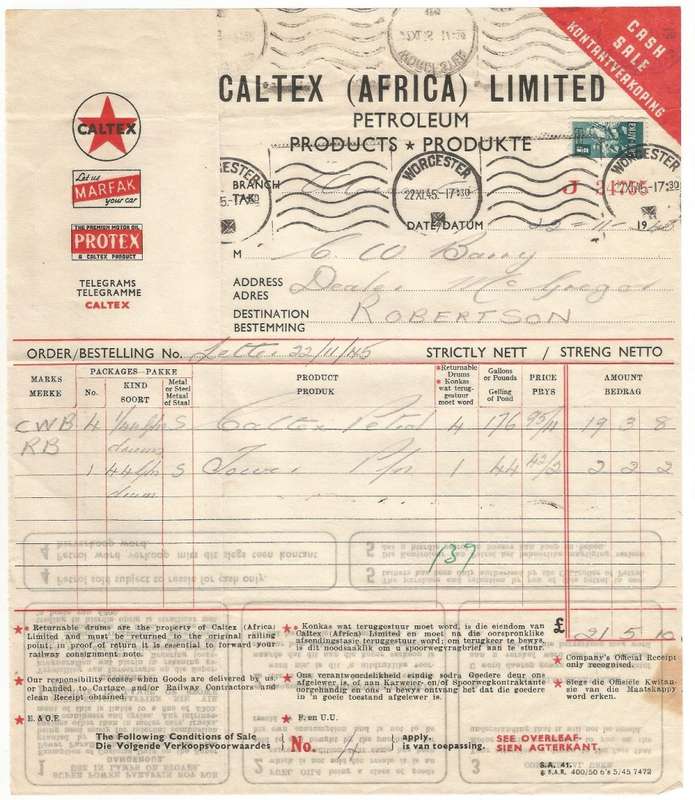 CASH SALE
KONTANTVERKOPING
CALTEX (AFRICA) LIMITED
PETROLEUM
PRODUCTS ★ PRODUKTE
CALTEX
Let us
MARFAK
your car
THE PREMIUM MOTOR OIL
PROTEX
A CALTEX PRODUCT
TELEGRAMS
TELEGRAMME
CALTEX
WORCESTER
22XI.45.-17:30
WORCESTER
22XI.45.-17:30
BRANCH
TAK
J 31755
DATE/DATUM 22-11-1945
M C. W Barry
ADDRESS
ADRES
Dealer McGregor
DESTINATION
BESTEMMING
ROBERTSON
ORDER/BESTELLING No. Letter 22/11/45 STRICTLY NETT / STRENG NETTO
MARKS
MERKE
PACKAGES-PAKKE
No.
KIND
SOORT
Metal or Steel
Metaal of Staal
PRODUCT
PRODUK
★Returnable Drums
★ Konkas wat terug-gestuur moet word
Gallons or Pounds
Gelling of Pond
PRICE
PRYS
AMOUNT
BEDRAG
CWB 4 drums S Caltex Petrol 4 176 95/11 19 3 8
RB 1 drum S Power 1 44 42/2 2 2 2
139
£ 21 5 10
★ Returnable drums are the property of Caltex (Africa) Limited and must be returned to the original railing point; in proof of return it is essential to forward your railway consignment note.
★ Konkas wat teruggestuur moet word, is die eiendom van Caltex (Africa) Limited en moet na die oorspronklike afsendingstasie teruggestuur word; om terugkeer te bewys, is dit noodsaaklik om u spoorwegvragbrief aan te stuur.
★ Company's Official Receipt only recognised.
★ Our responsibility ceases when Goods are delivered by us, or handed to Cartage and/or Railway Contractors and clean Receipt obtained.
★ Ons verantwoordelikheid eindig sodra Goedere deur ons afgelewer is, of aan Karweier- en/of Spoorwegkontrakteurs oorgehandig en ons 'n bewys ontvang het dat die goedere in goeie toestand afgelewer is.
★ Slegs die Offisiële Kwitansie van die Maatskappy word erken.
★ E. & O.E.
★ F. en U.U.
The Following Conditions of Sale
Die Volgende Verkoopsvoorwaardes
No. 4
apply.
is van toepassing.
SEE OVERLEAF-
SIEN AGTERKANT.
S.A. 41.
S.P.A.R. 400/50 6's 5/45 7472